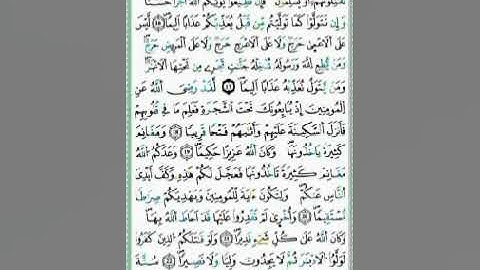 تُقَٰتِلُونَهُمُۥٓ أَوْ يُسْلِمُونَۖ فَإِن تُطِيعُوا۟ يُوتِكُمُ اُللَّهُ أَجْرًا حَسَنًاۖ
وَإِن تَتَوَلَّوْا۟ كَمَا تَوَلَّيْتُم مِّن قَبْلُ يُعَذِّبْكُمْ عَذَابًا اَلِيمًاۖ ١٦ لَّيْسَ
عَلَى اَلَاعْمَىٰ حَرَجٌ وَلَا عَلَى اَلَاعْرَجِ حَرَجٌ وَلَا عَلَى اَلْمَرِيضِ حَرَجٌۖ
وَمَنْ يُّطِعِ اِللَّهَ وَرَسُولَهُۥ نُدْخِلْهُ جَنَّٰتٍ تَجْرِے مِن تَحْتِهَا اَلَانْهَٰرُۖ
وَمَنْ يَّتَوَلَّ نُعَذِّبْهُ عَذَابًا اَلِيمًاۖ ١٧ لَّقَدْ رَضِيَ اَللَّهُ عَنِ
اِلْمُومِنِينَ إِذْ يُبَايِعُونَكَ تَحْتَ اَلشَّجَرَةِ فَعَلِمَ مَا فِے قُلُوبِهِمْ
فَأَنزَلَ اَلسَّكِينَةَ عَلَيْهِمْ وَأَثَٰبَهُمْ فَتْحًا قَرِيبًا ١٨ وَمَغَانِمَ
كَثِيرَةً يَاخُذُونَهَاۖ وَكَانَ اَللَّهُ عَزِيزًا حَكِيمًاۖ ١٩ وَعَدَكُمُ اُللَّهُ
مَغَانِمَ كَثِيرَةً تَاخُذُونَهَا فَعَجَّلَ لَكُمْ هَٰذِهِۦ وَكَفَّ أَيْدِيَ
اَلنَّاسِ عَنكُمْۖ وَلِتَكُونَ ءَايَةً لِّلْمُومِنِينَ وَيَهْدِيَكُمْ صِرَٰطًا
مُّسْتَقِيمًاۖ ٢٠ وَأُخْرَىٰ لَمْ تَقْدِرُوا۟ عَلَيْهَا قَدَ اَحَاطَ اَللَّهُ بِهَاۖ
وَكَانَ اَللَّهُ عَلَىٰ كُلِّ شَےْءٍ قَدِيرًاۖ ٢١ وَلَوْ قَٰتَلَكُمُ اُلذِينَ كَفَرُوا۟
لَوَلَّوُا۟ اُلَادْبَٰرَ ثُمَّ لَا يَجِدُونَ وَلِيًّا وَلَا نَصِيرًاۖ ٢٢ سُنَّةَ